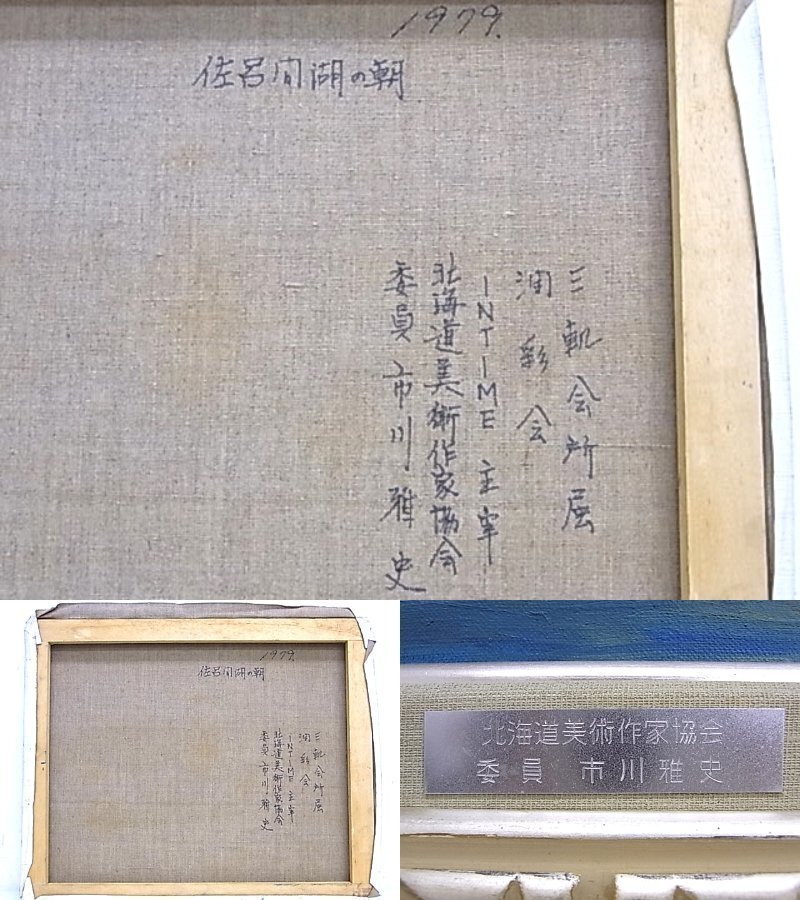 1979.
佐呂间湖の朝
三軌会所属
油彩会
INTIME 主宰
北海道美術作家協会
委員 市川雅史
1979.
佐呂间湖の朝
三軌会所属
油彩会
INTIME 主宰
北海道美術作家協会
委員 市川雅史
北海道美術作家協会
委員 市川雅史